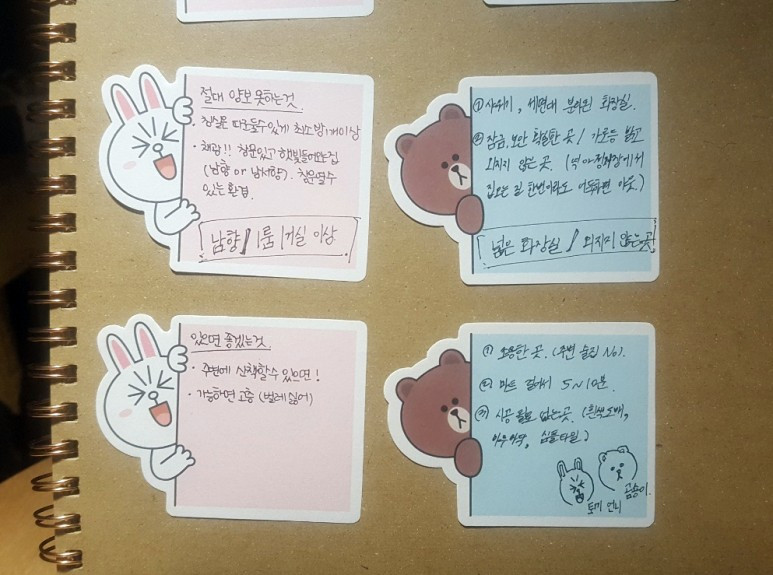 절대 양보 못하는것.
· 침실은 따로둘수있게 최소 방 1개이상
· 채광!! 창문있고 햇빛들어오는집
(남향 or 남서향). 창문열수
있는 환경.
남향 / 1룸 1거실 이상
① 샤워기, 세면대 분리된 화장실.
② 잠금, 보안 확실한 곳 / 가로등 밝고
외지지 않는 곳. (역 or 정류장에서
집오는 길 한번이라도 어두우면 아웃.)
넓은 화장실 / 외지지 않는곳
있으면 좋겠는것.
· 주변에 산책할수 있으면!
· 가능하면 고층 (벌레 싫어)
① 조용한 곳. (주변 술집 No).
② 마트 걸어서 5~10분.
③ 시공 필요 없는곳. (흰색도배,
심플타일)
토끼 언니
곰송이.